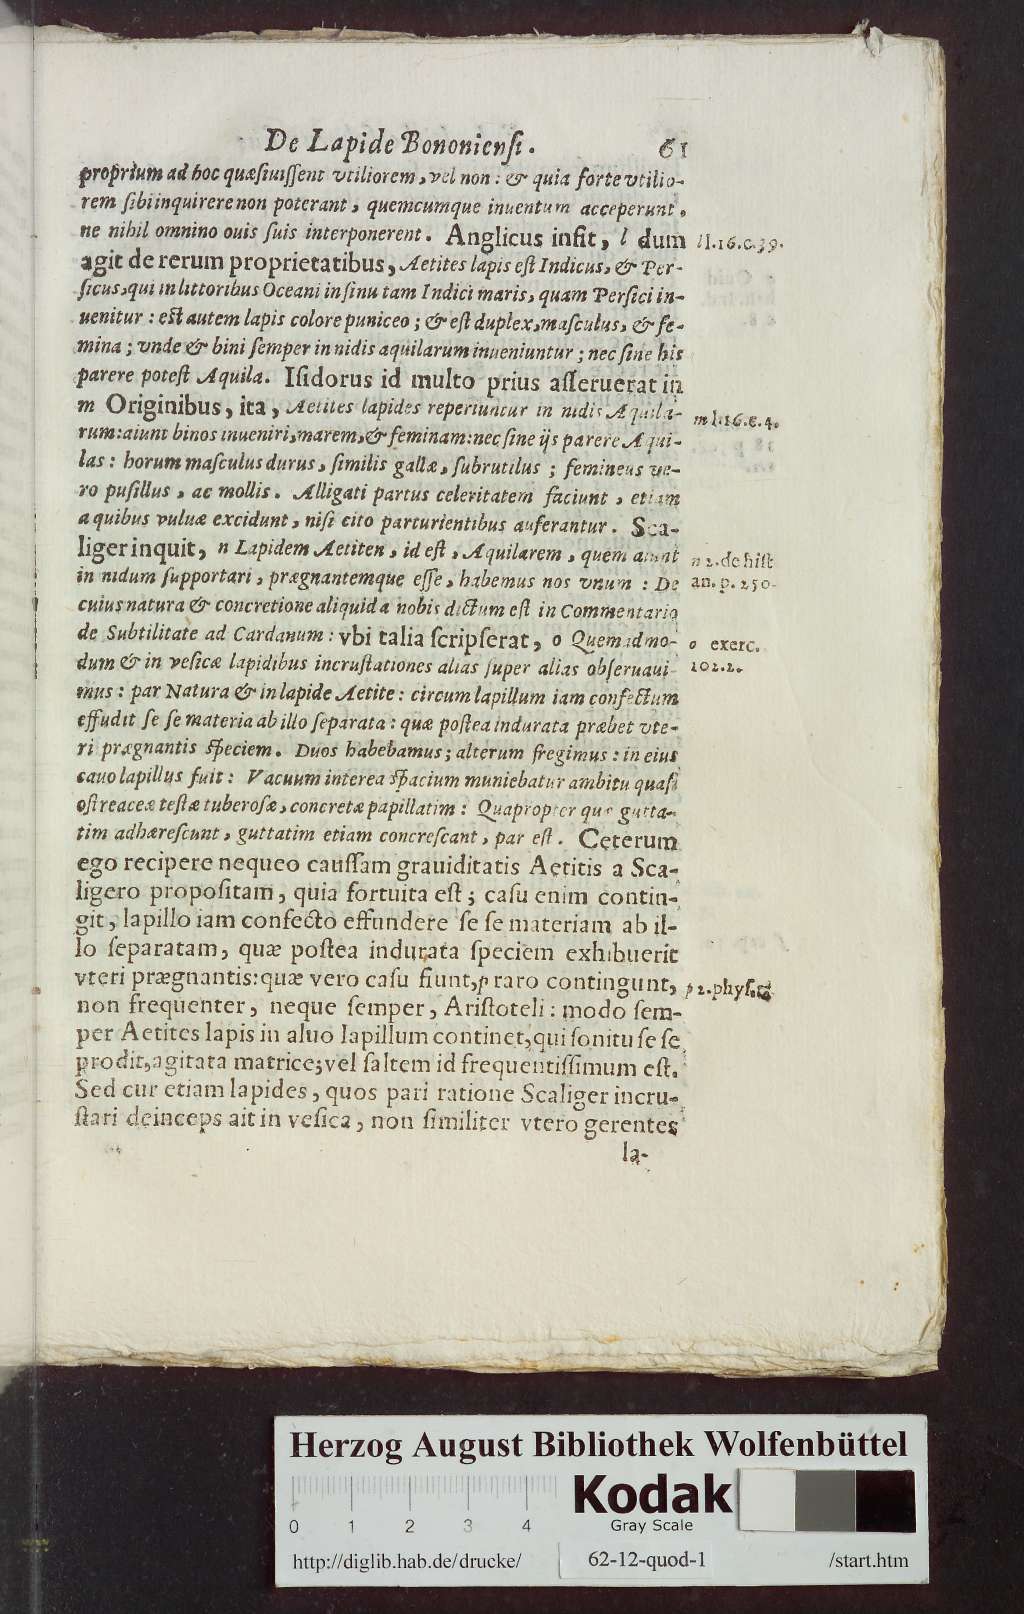 De Lapide Bononiensi. 61
proprium ad hoc quæsiuissent vtiliorem, vel non: & quia forte vtilio-
rem sibi inquirere non poterant, quemcumque inuentum acceperunt,
ne nihil omnino ouis suis interponerent. Anglicus infit, l dum
l l.16.c.39.
agit de rerum proprietatibus, Aetites lapis est Indicus, & Per-
sicus, qui in littoribus Oceani in sinu tam Indici maris, quam Persici in-
uenitur: est autem lapis colore puniceo; & est duplex, masculus, & fe-
mina; vnde & bini semper in nidis aquilarum inueniuntur; nec sine his
parere potest Aquila. Isidorus id multo prius asseruerat in
m Originibus, ita, Aetites lapides reperiuntur in nidis Aquila-
m l.16.c.4.
rum: aiunt binos inueniri, marem, & feminam: nec sine ijs parere Aqui-
las: horum masculus durus, similis gallæ, subrutilus; femineus ve-
ro pusillus, ac mollis. Alligati partus celeritatem faciunt, etiam
a quibus vuluæ excidunt, nisi cito parturientibus auferantur. Sca-
liger inquit, n Lapidem Aetiten, id est, Aquilarem, quem aiunt
n 2. de hist
in nidum supportari, prægnantemque esse, habemus nos vnum: De
an. p. 250.
cuius natura & concretione aliquid a nobis dictum est in Commentario
de Subtilitate ad Cardanum: vbi talia scripserat, o Quemadmo-
o exerc.
dum & in vesicæ lapidibus incrustationes alias super alias obseruaui-
102.2.
mus: par Natura & in lapide Aetite: circum lapillum iam confectum
effudit se se materia ab illo separata: quæ postea indurata præbet vte-
ri prægnantis speciem. Duos habebamus; alterum fregimus: in eius
cauo lapillus fuit: Vacuum interea spacium muniebatur ambitu quasi
ostreaceæ testæ tuberosæ, concretæ papillatim: Quapropter quæ gutta-
tim adhærescunt, guttatim etiam concrescant, par est. Ceterum
ego recipere nequeo caussam grauiditatis Aetitis a Sca-
ligero propositam, quia fortuita est; casu enim contin-
git, lapillo iam confecto effundere se se materiam ab il-
lo separatam, quæ postea indurata speciem exhibuerit
vteri prægnantis: quæ vero casu fiunt, p raro contingunt,
p 2. phys.
non frequenter, neque semper, Aristoteli: modo sem-
per Aetites lapis in aluo lapillum continet, qui sonitu se se
prodit, agitata matrice; vel saltem id frequentissimum est.
Sed cur etiam lapides, quos pari ratione Scaliger incru-
stari deinceps ait in vesica, non similiter vtero gerentes
la-
Herzog August Bibliothek Wolfenbüttel
0 1 2 3 4
Kodak
Gray Scale
http://diglib.hab.de/drucke/ 62-12-quod-1 /start.htm